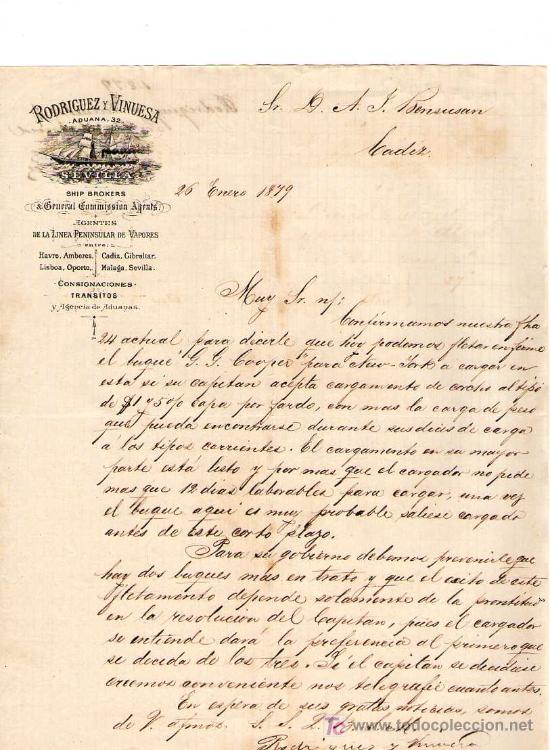 RODRIGUEZ Y VINUESA
ADUANA, 32
SEVILLA
SHIP BROKERS
& General Commission Agents.
AGENTES
DE LA LINEA PENINSULAR DE VAPORES
entre:
Havre, Amberes, Cadiz, Gibraltar,
Lisboa, Oporto, Malaga, Sevilla.
CONSIGNACIONES
TRANSITOS
y Agencia de Aduanas.
Sr. D. A. J. Bensusan
Cadiz.
26 Enero 1879
Muy Sr. n/:
Confirmamos nuestra fha
24 actual para dicirle que hoy podemos fletar en firme
el buque "G. G. Cooper" para New-York a cargar en
esta si su capitan acepta cargamento de corcho al tipo
de $1 y 5 o/o capa por fardo, con mas la carga de peso
que pueda encontrarse durante sus dias de carga
á los tipos corrientes. El cargamento en su mayor
parte está listo y por mas que el cargador no pide
mas que 12 dias laborables para cargar, una vez
el buque aqui es muy probable saliese cargado
antes de este corto plazo.
Para su gobierno debemos prevenirle que
hay dos buques mas en trato y que el exito de este
fletamento depende solamente de la prontitud
en la resolucion del Capitan, pues el cargador
se entiende dará la preferencia al primero que
se decida de los tres. Si el capitan se decidiese
creemos conveniente nos telegrafie cuanto antes.
En espera de sus gratas noticias, somos
de V. afmos. S. S.
Rodriguez y Vinuesa
www.todocoleccion.net